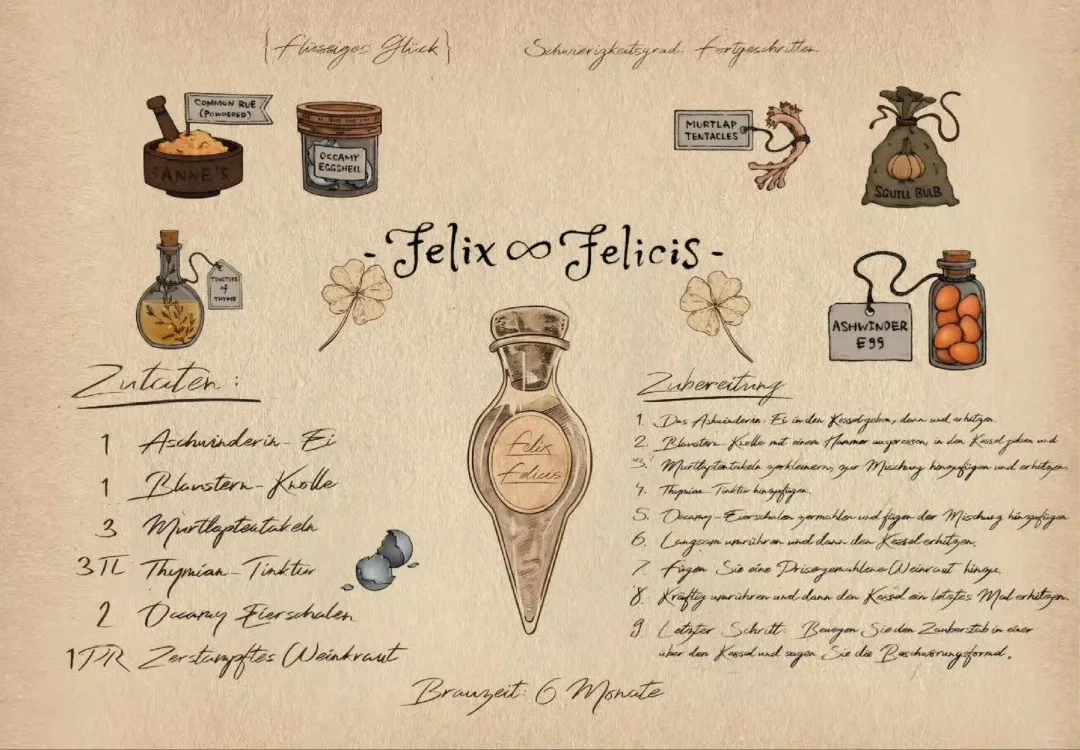 {flüssiges Glück}
Schwierigkeitsgrad: Fortgeschritten
COMMON RUE
(POWDERED)
ANNE'S
OCCAMY
EGGSHELL
MURTLAP
TENTACLES
SQUILL BULB
- Felix ∞ Felicis -
TINCTURE
of
THYME
ASHWINDER
E99
Felix
Felicis
Zutaten:
1 Aschwinderin-Ei
1 Blaustern-Knolle
3 Murtlaptentakeln
3 TL Thymian-Tinktur
2 Occamy Eierschalen
1 PR Zerstampftes Weinkraut
Zubereitung
1. Das Ashwinderin-Ei in den Kessel geben, dann und erhitzen.
2. Blaustern-Knolle mit einem Hammer auspressen, in den Kessel geben und
3. Murtlaptentakeln zerkleinern, zur Mischung hinzufügen und erhitzen.
4. Thymian-Tinktur hinzufügen.
5. Occamy-Eierschalen zermahlen und fügen der Mischung hinzufügen
6. Langsam umrühren und dann den Kessel erhitzen.
7. Fügen Sie eine Prise gemahlene Weinraut hinzu.
8. Kräftig umrühren und dann den Kessel ein letztes Mal erhitzen.
9. Letzter Schritt: Bewegen Sie den Zauberstab in einer
über den Kessel und sagen Sie die Beschwörungsformel.
Brauzeit: 6 Monate